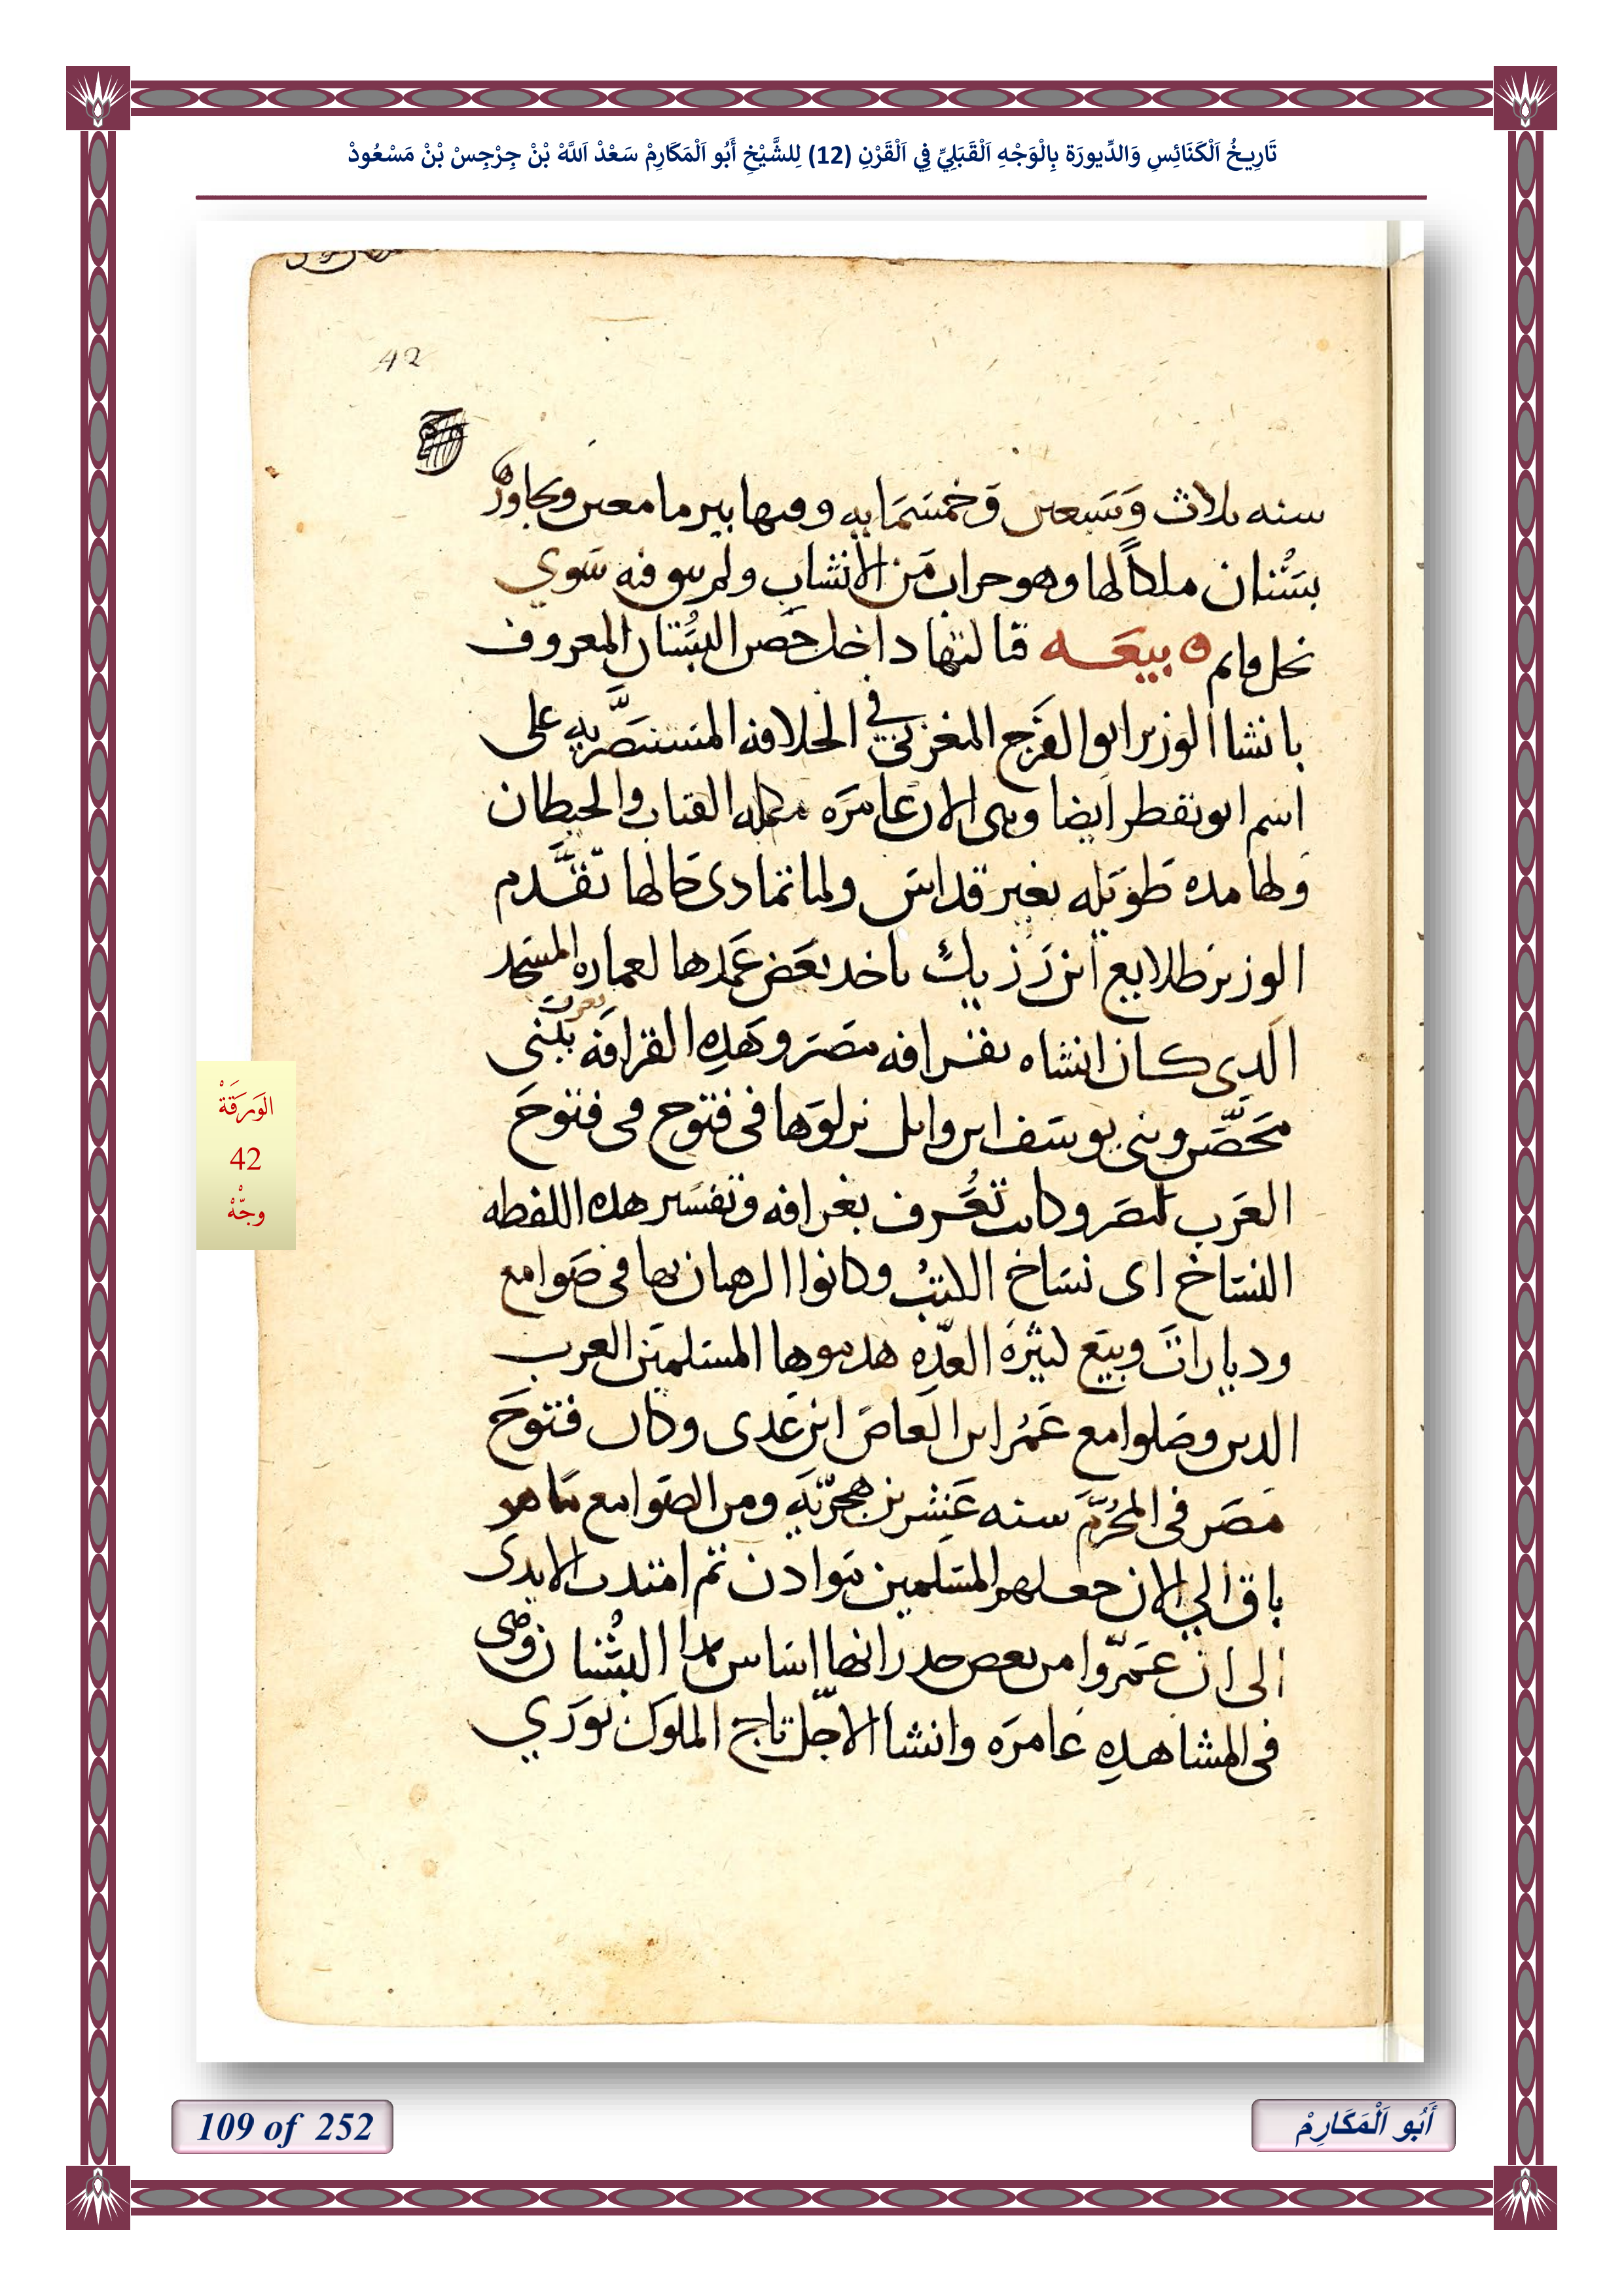 تَارِيخُ اَلْكَنَائِسِ وَالدِّيورَة بِالْوَجْهِ اَلْقَبَلِيِّ فِي اَلْقَرْنِ (12) لِلشَّيْخِ أَبُو اَلْمَكَارِمْ سَعْدْ اَللَّهْ بْنْ جِرْجِسْ بْنْ مَسْعُودْ
42
سنه ثلاث وتسعين وخمسمايه وفيها بير ما معين ويجاورها
بستان ملكا لها وهو خراب من الانشاب ولم يبق فيه سوي
نخل قايم ه بيعه ثالثها داخل حصن البستان المعروف
بانشا الوزير ابو الفرج المغربي في الخلافه المستنصريه على
اسم ابو نقطر ايضا وهى الان عامره مكمله القباب والحيطان
ولها مده طويله بغير قداس ولما تمادى حالها تقدم
الوزير طلايع ابن رزيك باخد بعض عمدها لعماره المسجد
الدى كان انشاه بقرافه مصر وهده القرافه تعرف ببنى
محصر وبنى يوسف ابن وايل نزلوها فى فتوح فى فتوح
العرب لمصر وكانت تعرف بغرافه وتفسير هده اللفطه
النساخ اى نساخ الكتب وكانوا الرهبان بها فى صوامع
وديارات وبيع كثيرة العده هدموها المسلمين العرب
الدين وصلوا مع عمر ابن العاص ابن عدى وكان فتوح
مصر فى المحرم سنه عشرين هجرية ومن الصوامع ما هو
باق الي الان جعلهم المسلمين موادن ثم امتدت الايدى
الى ان عمروا من بعض جدرانها اساس هدا البستان وهى
فى المشاهده عامره وانشا الاجل تاج الملوك بوري
الوَرَقَةْ
42
وجّهْ
109 of 252
أَبُو اَلْمَكَارِمْ